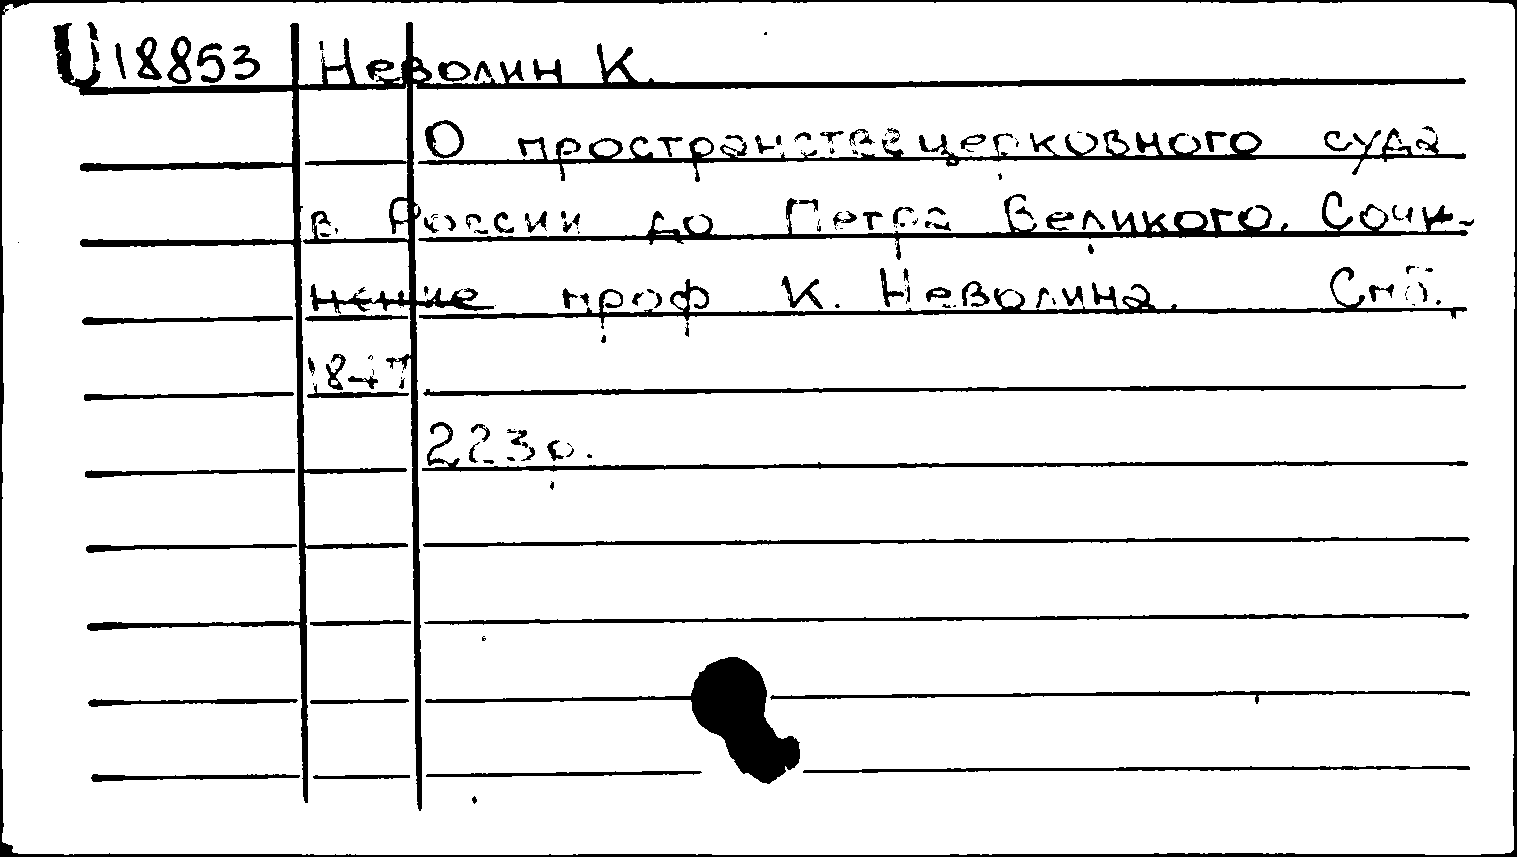 U18853 Неволин К.
О пространстве церковного суда
в России до Петра Великого. Сочи-
нение проф К. Неволина. Спб.
1847
223 р.